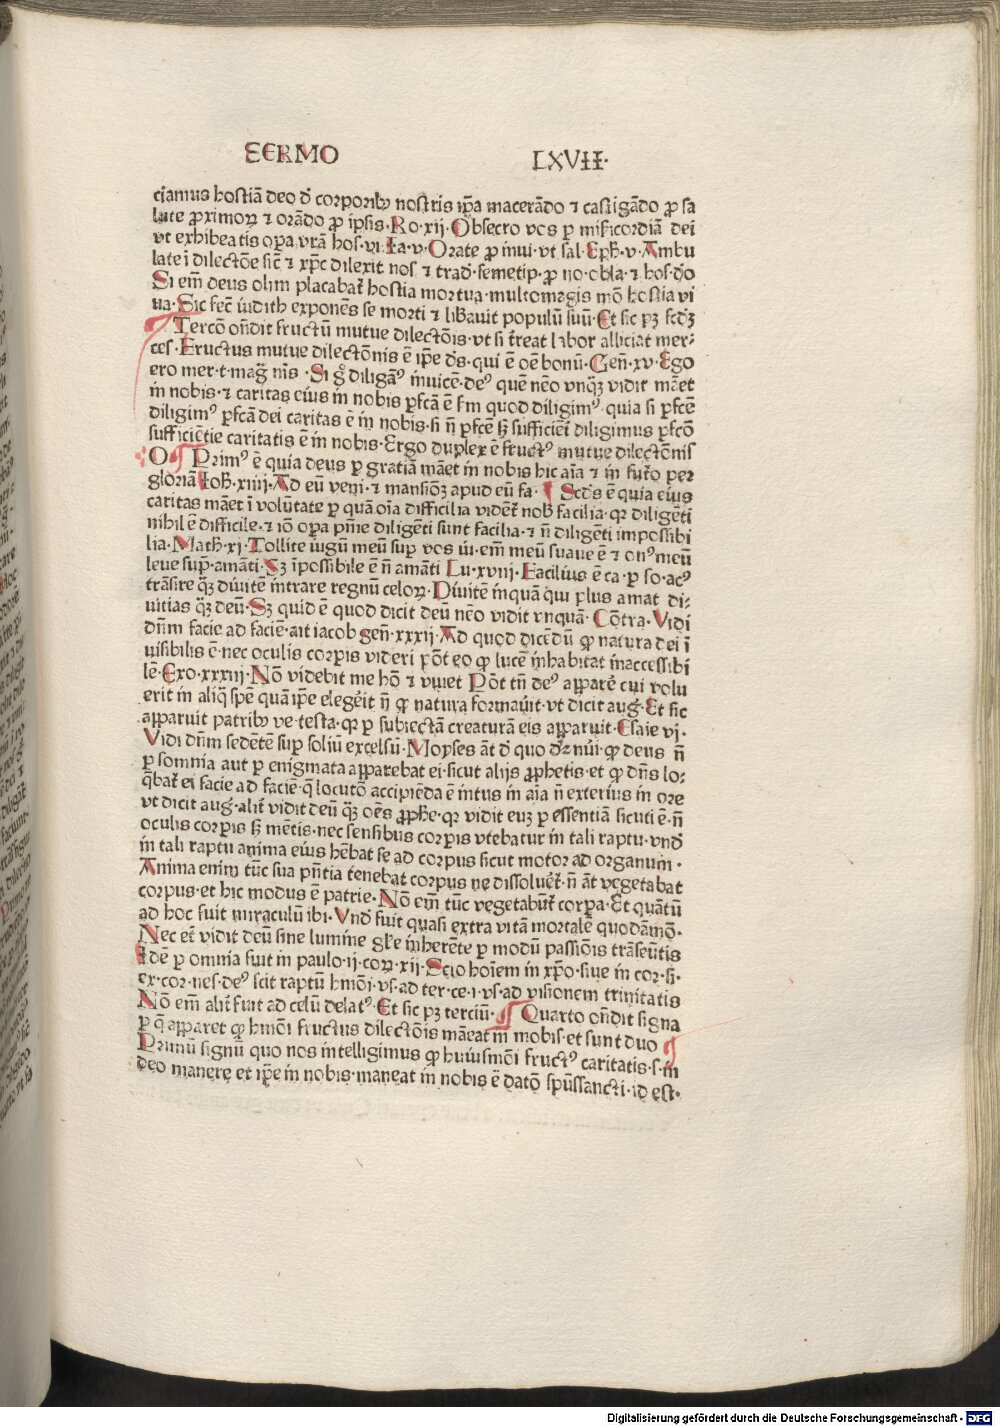 SERMO LXVII·
ciamus hostiā deo d̄ corporibꝫ nostris ip̄a macerādo ⁊ castigādo ꝓ sa
lute ꝓximoꝝ ⁊ orādo ꝓ ipsis· Ro·xij· Obsecro vos ꝑ mi̅sericordiā dei
vt exhibeatis oꝑa vrā hos·vi· Ia·v· Orate ꝓ inui·vt sal· Eph̄·v· Ambu
late ī dilectōe sic̄ ⁊ xp̄c dilexit nos ⁊ trad̄·semetip·ꝓ no·obla·⁊ hos·d̄o
Si em̄ deus olim placabat̄ hostia mortua·multomagis mō hostia vi
ua· Sic fec̄ iudith exponēs se morti ⁊ libauit populū suū· Et sic pꝫ scd̄ꝫ
Tercō on̄dit fructū mutue dilectōis·vt si t̄reat labor alliciat mer⸗
ces· Fructus mutue dilectōnis ē ip̄e d̄s·qui ē oē bonū· Gen̄·xv· Ego
ero mer·t·maḡ nis· Si g̊ diligāꝰ inuicē·deꝰ quē nēo vnqꝫ vidit māet
in nobis·⁊ caritas eius in nobis ꝑfcā ē s̄m quod diligimꝰ·quia si ꝑfcē
diligimꝰ ꝑfcā dei caritas ē in nobis·si n̄ ꝑfcē sꝫ sufficiēt̄ diligimus ꝑfcō
sufficiētie caritatis ē in nobis· Ergo duplex ē fructꝰ mutue dilectōnis
O Primꝰ ē quia deus ꝑ gratiā māet in nobis hic aīa ⁊ in fut̄o per
gloriā Ioh̄·xiiij· Ad eū veni·⁊ mansiōꝫ apud eū fa· Scd̄s ē quia eius
caritas māet ī volūtate ꝑ quā oīa difficilia vident̄ nob̄ facilia·qꝛ diligēti
nihil ē difficile·⁊ iō oꝑa pn̄ie diligēti sunt facilia·⁊ n̄ diligēti impossibi
lia· Math̄·xj· Tollite iugū meū suꝑ vos iu·em̄ meū suaue ē ⁊ onꝰ meū
leue suꝑ·amāti· Sꝫ īpossibile ē n̄ amāti Lu·xviij· Facilius ē ca·ꝑ fo·acꝰ
trāsire qꝫ diuitē intrare regnū celoꝝ· Diuitē inquā qui plus amat di⸗
uitias qꝫ deū· Sꝫ quid ē quod dicit deū nēo vidit vnquā· Cōtra· Vidi
dn̄m facie ad faciē·ait iacob gen̄·xxxij· Ad quod dicēdū ꝙ natura dei ī
uisibilis ē·nec oculis corꝑis videri pōt eo ꝙ lucē inhabitat inaccessibi
lē· Exo·xxxiij· Nō videbit me hō ⁊ viuet Pōt tn̄ deꝰ apparē cui volu
erit in aliq̄ spē quā ip̄e elegeīt n̄ ꝙ natura formauit·vt dicit aug· Et sic
apparuit patribꝫ ve·testa·qꝛ ꝑ subiectā creaturā eis apparuit· Esaie vj·
Vidi dn̄m sedētē suꝑ soliū excelsū· Moyses āt d̄ quo d̄ꝛ nūi·ꝙ deus n̄
ꝑ somnia aut ꝑ enigmata apparebat ei·sicut alijs ꝓphetis·et ꝙ dn̄s lo⸗
q̄bat̄ ei facie ad faciē·q̄ locutō accipiēda ē intus in aīa n̄ exterius in ore
vt dicit aug·alit̄ vidit deū qꝫ oēs ꝓph̄e·qꝛ vidit euꝫ ꝑ essentiā sicuti ē·n̄
oculis corꝑis sꝫ mētis·nec sensibus corꝑis vtebatur in tali raptu·vnd̄
in tali raptu anima eius hēbat se ad corpus sicut motor ad organum·
Anima enim tūc sua pn̄tia tenebat corpus ne dissoluēt̄·n̄ āt vegetabat
corpus·et hic modus ē patrie· Nō em̄ tūc vegetabūt̄ corꝑa· Et quātū
ad hoc fuit miraculū ibi· Vnd̄ fuit quasi extra vitā mortalē quodāmō·
Nec et̄ vidit deū sine lumine gl̄e inherēte ꝑ modū passiōis trāseūtis
Idē ꝑ omnia fuit in paulo·ij·coꝝ·xij· Scio hoīem in xp̄o·siue in cor·si·
ex·cor·nes·deꝰ scit raptū hmōi·vs·ad ter·ce·i·vs·ad visionem trinitatis
Nō em̄ alit̄ fuit ad celū delatꝰ· Et sic pꝫ terciū· Quarto on̄dit signa
ꝑ q̄ apparet ꝙ hmōi fructus dilectōis māeat in nobis·et sunt duo
Primū signū quo nos intelligimus ꝙ huiusmōi fructꝰ caritatis·s·in
deo manere et ip̄e in nobis·maneat in nobis ē datō spūssancti·id est·
Digitalisierung gefördert durch die Deutsche Forschungsgemeinschaft - DFG